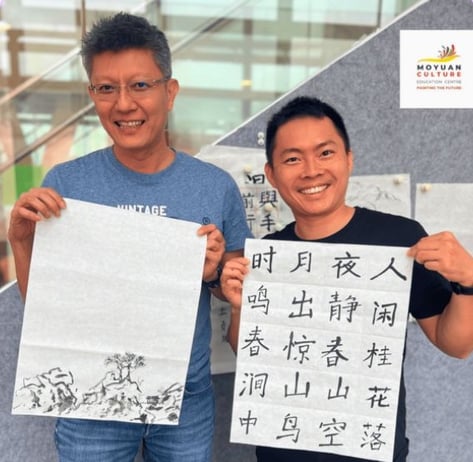 MOYUAN
CULTURE
EDUCATION CENTRE
PAINTING THE FUTURE
VINTAGE
人闲桂花落
夜静春山空
月出惊山鸟
时鸣春涧中